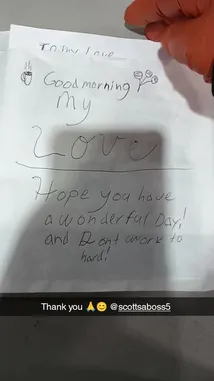 To my Love
Good morning
My
Love
Hope you have
a wonderful Day!
and Dont work to
hard!
Thank you 🙏😊 @scottsaboss5